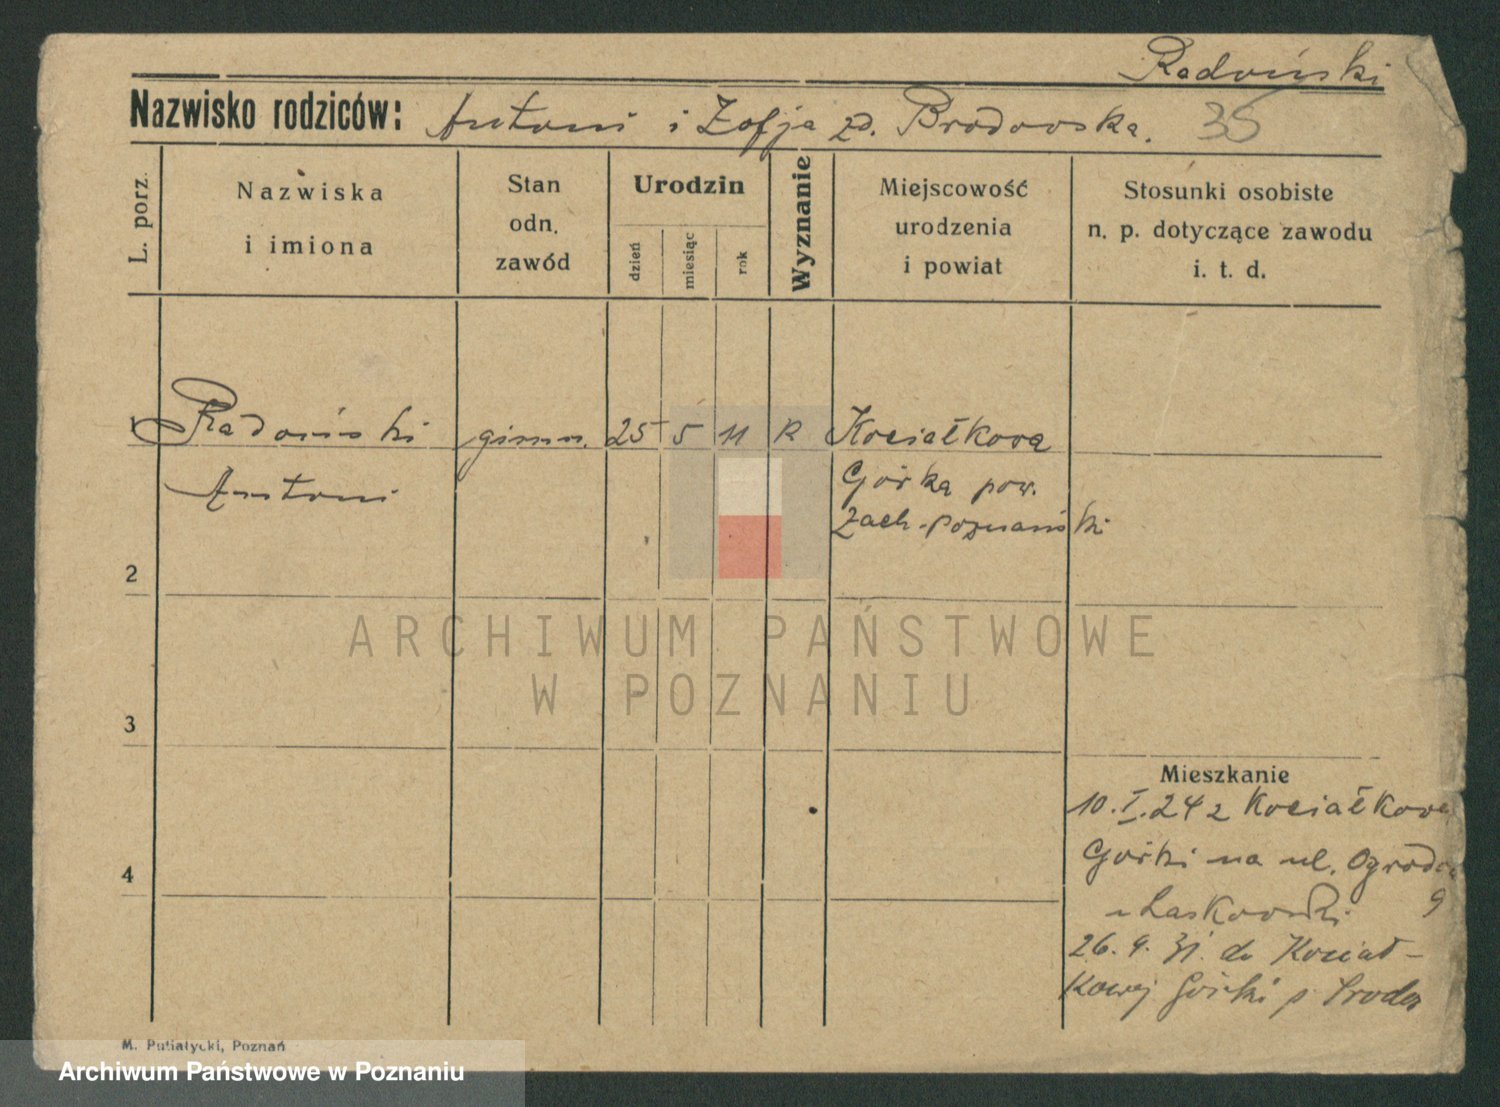 Radoński
Nazwisko rodziców: Antoni i Zofja zd. Brodowska. 35
L. porz.
Nazwiska
i imiona
Stan
odn.
zawód
Urodzin
dzień
miesiąc
rok
Wyznanie
Miejscowość
urodzenia
i powiat
Stosunki osobiste
n. p. dotyczące zawodu
i. t. d.
1 Radoński gimn. 25 5 11 R Kociałkowa
Antoni Górka pow.
Zach-Poznański
2
3
4
Mieszkanie
10.I.24 z Kociałkowej
Górki na ul. Ogrodowa
9
u Laskowski
26.9.31. do Kociał-
kowej Górki p. Środa
M. Putiatycki, Poznań
ARCHIWUM PAŃSTWOWE
W POZNANIU
Archiwum Państwowe w Poznaniu